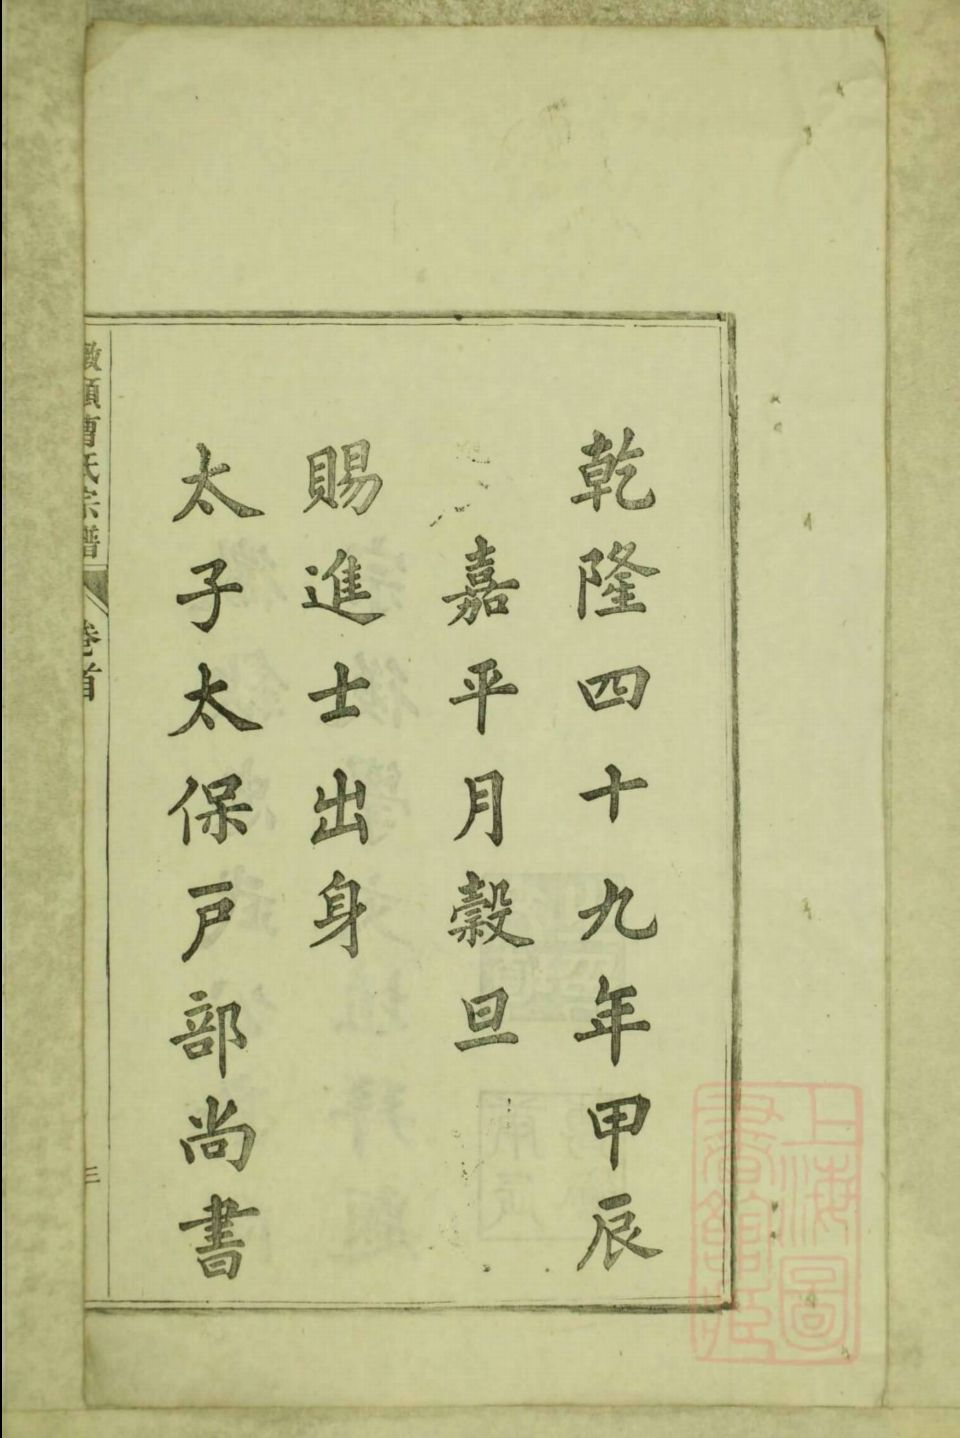 乾隆四十九年甲辰
嘉平月穀旦
賜進士出身
太子太保戶部尚書
曹氏宗譜
卷首
三
上海圖書館藏